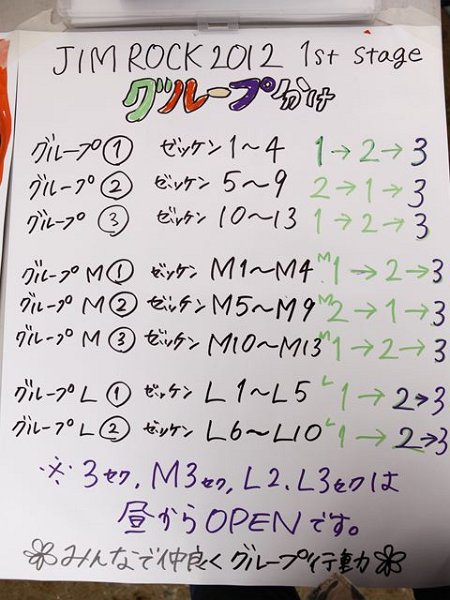 JIM ROCK 2012 1st Stage
グループ分け
グループ① ゼッケン 1〜4 1→2→3
グループ② ゼッケン 5〜9 2→1→3
グループ③ ゼッケン 10〜13 1→2→3
グループM① ゼッケン M1〜M4 M1→2→3
グループM② ゼッケン M5〜M9 M2→1→3
グループM③ ゼッケン M10〜M13 M1→2→3
グループL① ゼッケン L1〜L5 L1→2→3
グループL② ゼッケン L6〜L10 L1→2→3
※3セク,M3セク,L2.L3セクは
昼からOPENです。
みんなで仲良くグループ行動